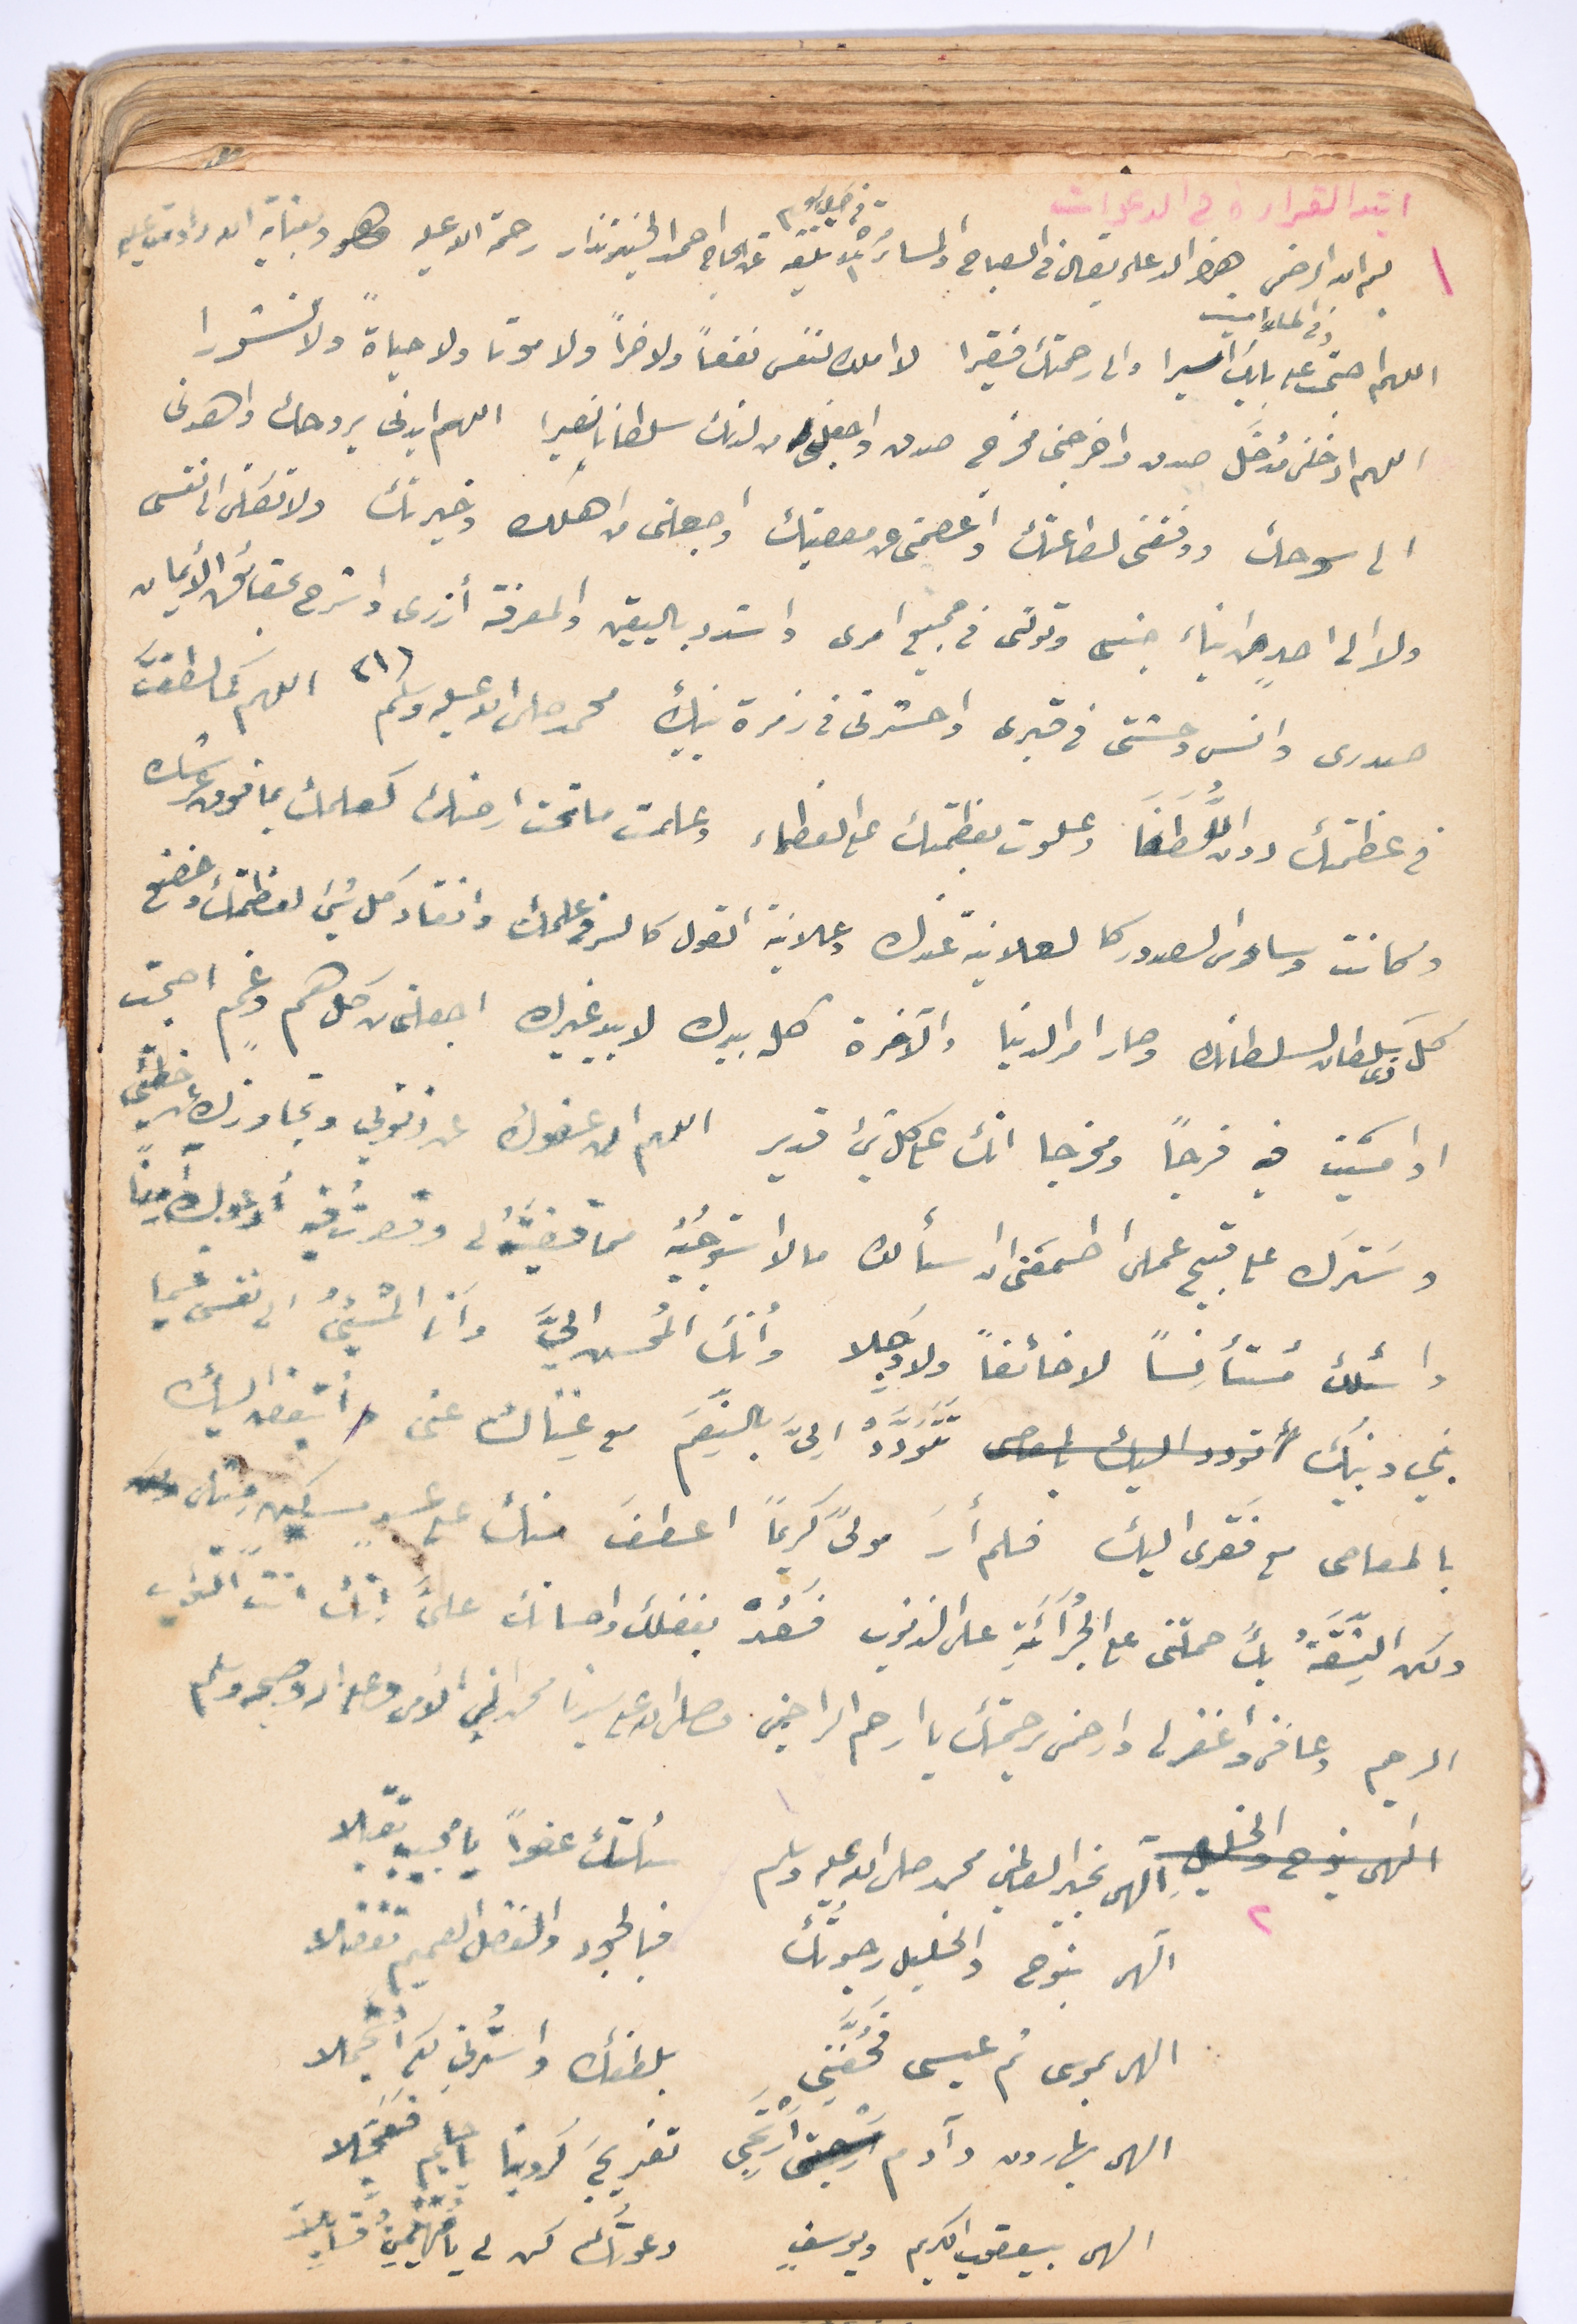 ابتد القراءة في الدعوات
١ بسم الله الرحمن هذا الدعاء يقال في الصباح والمساء مرة تلقيته عن الحاج احمد رحمة الله عليه وهو
اللهم اصبحت على بابك اسيرا والى رحمتك فقيرا لا املك لنفسي نفعاً ولا ضراً ولا موتا ولا حياةً ولا نشورا
اللهم ادخلني مُدْخَلَ صدق واخرجني مخرج صدق واجعل لي من لدنك سلطانا نصيرا اللهم ايدني بروحك واهدني
الى سوحك ووفقني لطاعتك واعصمني من معصيتك واجعلني من اهلك وخيرتك ولا تكلني الى نفسي
ولا الى احدٍ من ابناء جنسي وتولني في جميع امري واشدد باليقين والمعرفة أزري واشرح بحقائق الأيمان
صدري وانس وحشتي في قبري واحشرني في زمرة نبيك محمد صلى الله عليه وسلم ٢١٦ اللهم كما لطفتَ
في عظمتك دون اللُّطَفَا وعلوت بعظمتك على العظماء وعلمت ما تحت ارضك كعلمك بما فوق عرشك
وكانت وساوس الصدور كالعلانية عندك وعلانية القول كالسر في علمك وانقاد كل شيء لعظمتك وخضع
كل ذي سلطان لسلطانك وصار امر الدنيا والآخرة كله بيدك لا بيد غيرك اجعل لي من كل همٍ وغمٍ اصبحت
او امسيت فيه فرجاً ومخرجا انك على كل شيء قدير اللهم ان عفوك عن ذنوبي وتجاوزك عن خطيئتي
وسترك على قبيح عملي اطمعني ان اسألك ما لا استوجبه مما قضيتَهُ لي وقصرتُ فيه أدعوك أمناً
واسئلك مُستأنِساً لا خائفاً ولا وَجِلا وأنك المُحسن اليَّ وأنا المُسيءُ الى نفسي فيما
بيني وبينك أتودد اليك بالمعاصي تَتَوَدَّدُ اليَّ بالنِّعَم مع غِناك عني وأتبغض اليك
بالمعاصي مع فقري اليك فلم أرَ مولىً كريماً اعطفَ منك على عبدٍ مسكين مثلي
ولكن الثِّقَةُ بكَ حملتني على الجُرْأَةِ على الذنوب فَعُدْ بفضلك واحسانك عليَّ إنك انت التواب
الرحيم وعافني واغفر لي وارحمني برحمتك يا ارحم الراحمين وصلى الله على سيدنا محمد النبي الأمي وعلى اله وصحبه وسلم
٢ الهي بنوح والخليل الهي بخير العالمين محمد صلى الله عليه وسلم سئلتك عفواً يا مجيب تقبلا
الهي بنوح والخليل رجوتُك فبالجود والفضل العميم تفضلا
الهي بموسى ثم عيسى فَحُفَّنِي بلطفك واستُرني لكي أتجملا
الهي بهارون وآدم أرتجي تفريجَ كروبنا يا حليم فعجلا
الهي بيعقوب الكريم ويوسفٍ دعوتُك كن لي يا مهيمنُ قابلا